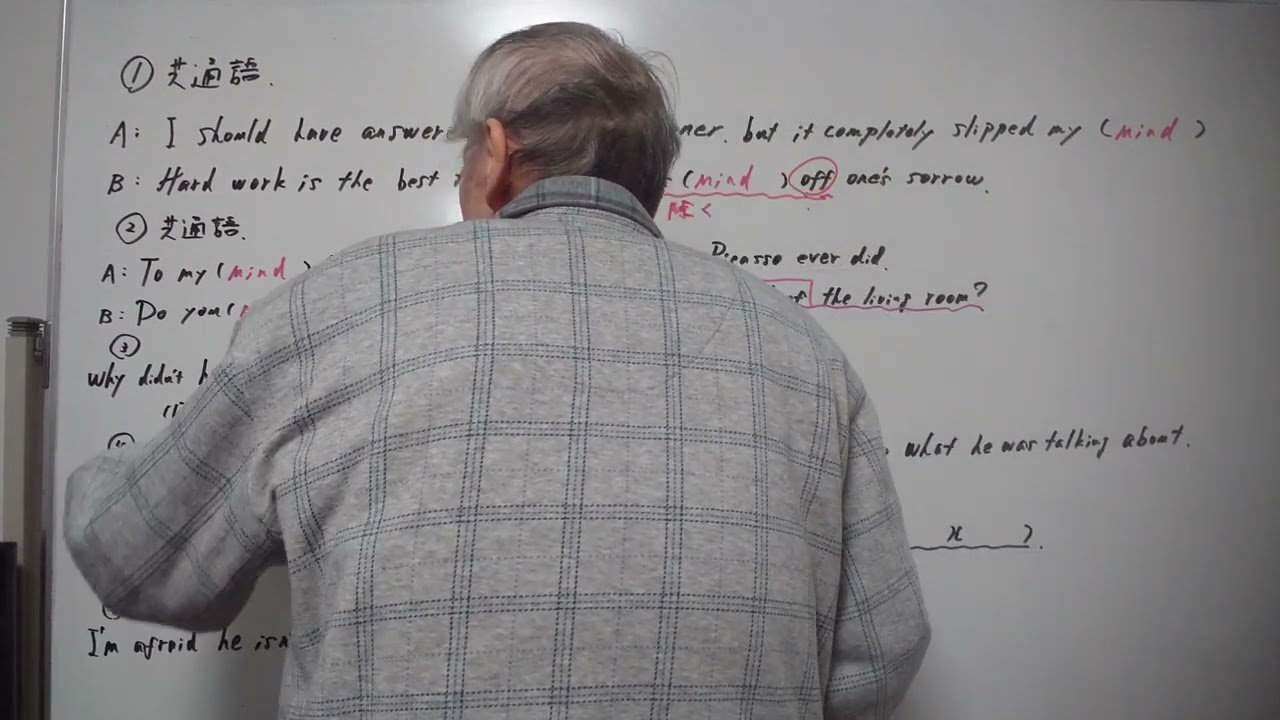 ① 共通語.
A: I should have answer ner. but it completely slipped my (mind )
B: Hard work is the best (mind ) off one's sorrow.
除く
② 共通語.
A: To my (mind ) Picasso ever did.
B: Do you ( of the living room?
③
Why didn't h
what he was talking about.
x ).
I'm afraid he isn